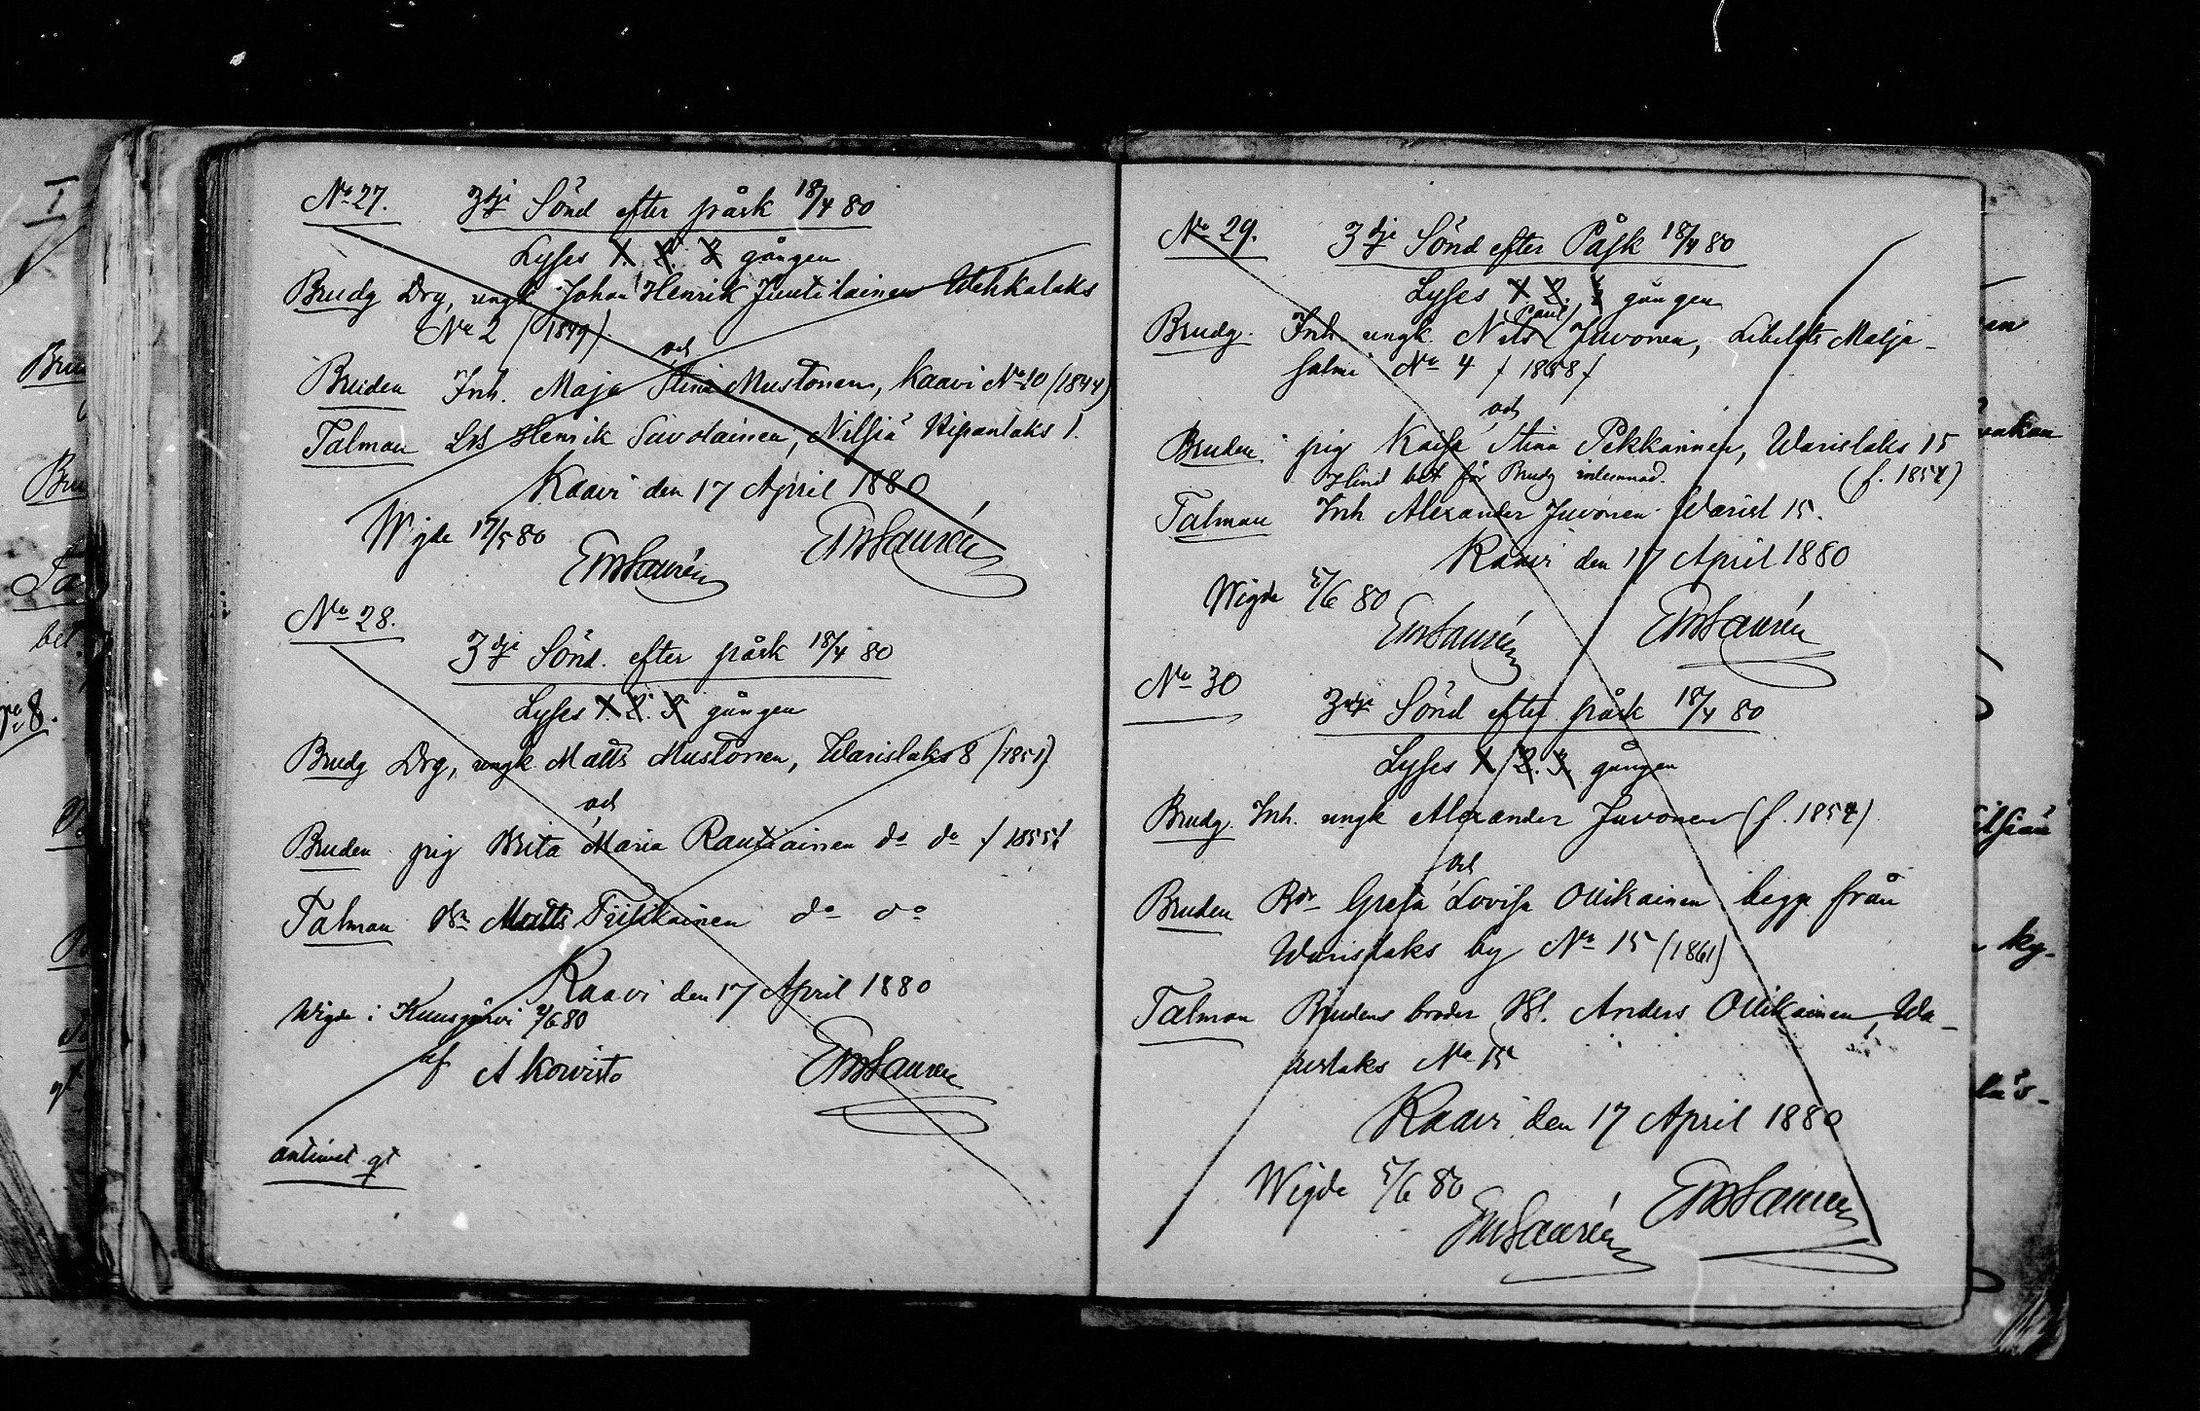 No 27. 3dje Sönd efter påsk 18/4 80
Lyses 1. 2. 3 gången
Brudg Drg, ungk Johan Henrik Juutilainen Wehkalaks
No 2 (1849)
och
Bruden Inh. Maja Stina Mustonen, Kaavi No 10 (1844)
Talman Henrik Savolainen, Nilsiä 1.
Kaavi den 17 April 1880
Wigde 17/5 80
EmSaurén EmSaurén
No 28.
3dje Sönd. efter påsk 18/4 80
Lyses 1. 2. 3 gången
Brudg Drg, ungk Matts Mustonen, Warislaks 8 (1851)
och
Bruden pig Brita Maria Rautiainen do do (1855)
Talman Matts do do
Kaavi den 17 April 1880
Wigde i Kuusjärvi /6 80
af A Koivisto EmSaurén
antecnat gt
No 29. 3dje Sönd efter Påsk 18/4 80
Lyses 1 2. 3 gången
Paul
Brudg. Inh ungk. Nils Juvonen, Libelits Matja-
salmi No 4 (1858)
och
Bruden pig Kaisa Stina Pekkarinen, Warislaks 15
Hind bet för Brudg inlemnad. (f. 1854)
Talman Inh Alexander Juvonen Warisl 15.
Kaavi den 17 April 1880
Wigde 5/6 80
EmSaurén EmSaurén
No 30 3dje Sönd efter påsk 18/4 80
Lyses 1 2. 3. gången
Brudg. Inh. ungk Alexander Juvonen (f. 1854)
och
Bruden Bdr Greta Lovisa Ollikainen begge från
Warislaks by No 15 (1861)
Talman Brudens broder Anders Ollikainen, Wa-
rislaks No 15
Kaavi den 17 April 1880
Wigde 5/6 80
EmSaurén EmSaurén